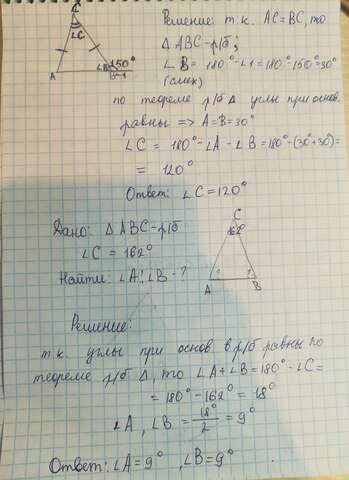 C
∠C
∠B
150°
A
B 1
Решение: т.к. AC=BC, то
△ABC-р/б;
∠B = 180°-∠1=180°-150°=30°
(смеж)
по теореме р/б △ углы при основ.
равны => A=B=30°
∠C = 180°-∠A-∠B=180°-(30°+30°)=
= 120°
Ответ: ∠C=120°
Дано: △ABC-р/б
∠C = 162°
Найти: ∠A; ∠B-?
C
162°
A
B
Решение:
т.к. углы при основ. в р/б равны по
теореме р/б △, то ∠A+∠B=180°-∠C=
= 180°-162°= 18°
∠A, ∠B = 18°/2 = 9°
Ответ: ∠A=9°, ∠B=9°